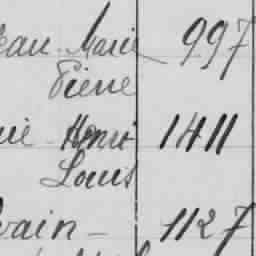 Marie 997
Pierre
Henri 1411
Louis
vain - 1127